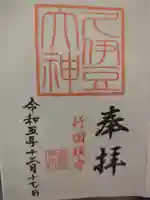 奉拝
久伊豆
大神
行田鎮守
令和五年十二月十七日